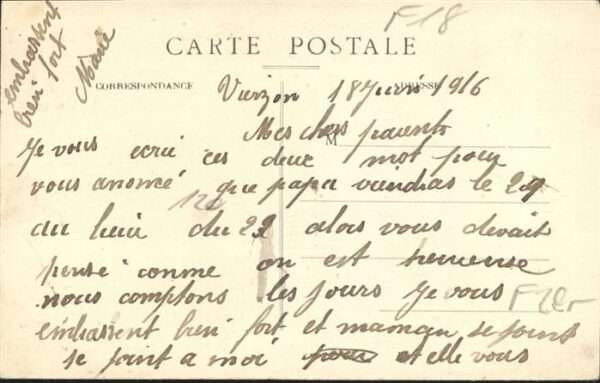 F 18
CARTE POSTALE
CORRESPONDANCE
ADRESSE
Vierzon 18 Juin 1916
Mes chers parents
M
Je vous ecri ces deux mot pour
vous anoncé que papa viendras le 29
au lieu du 22 alors vous devait
pensé comme on est heureuse
nous comptons les jours Je vous
embrassent bien fort et maman se joint
se joint a moi et elle vous
embrassent
bien fort
Marie